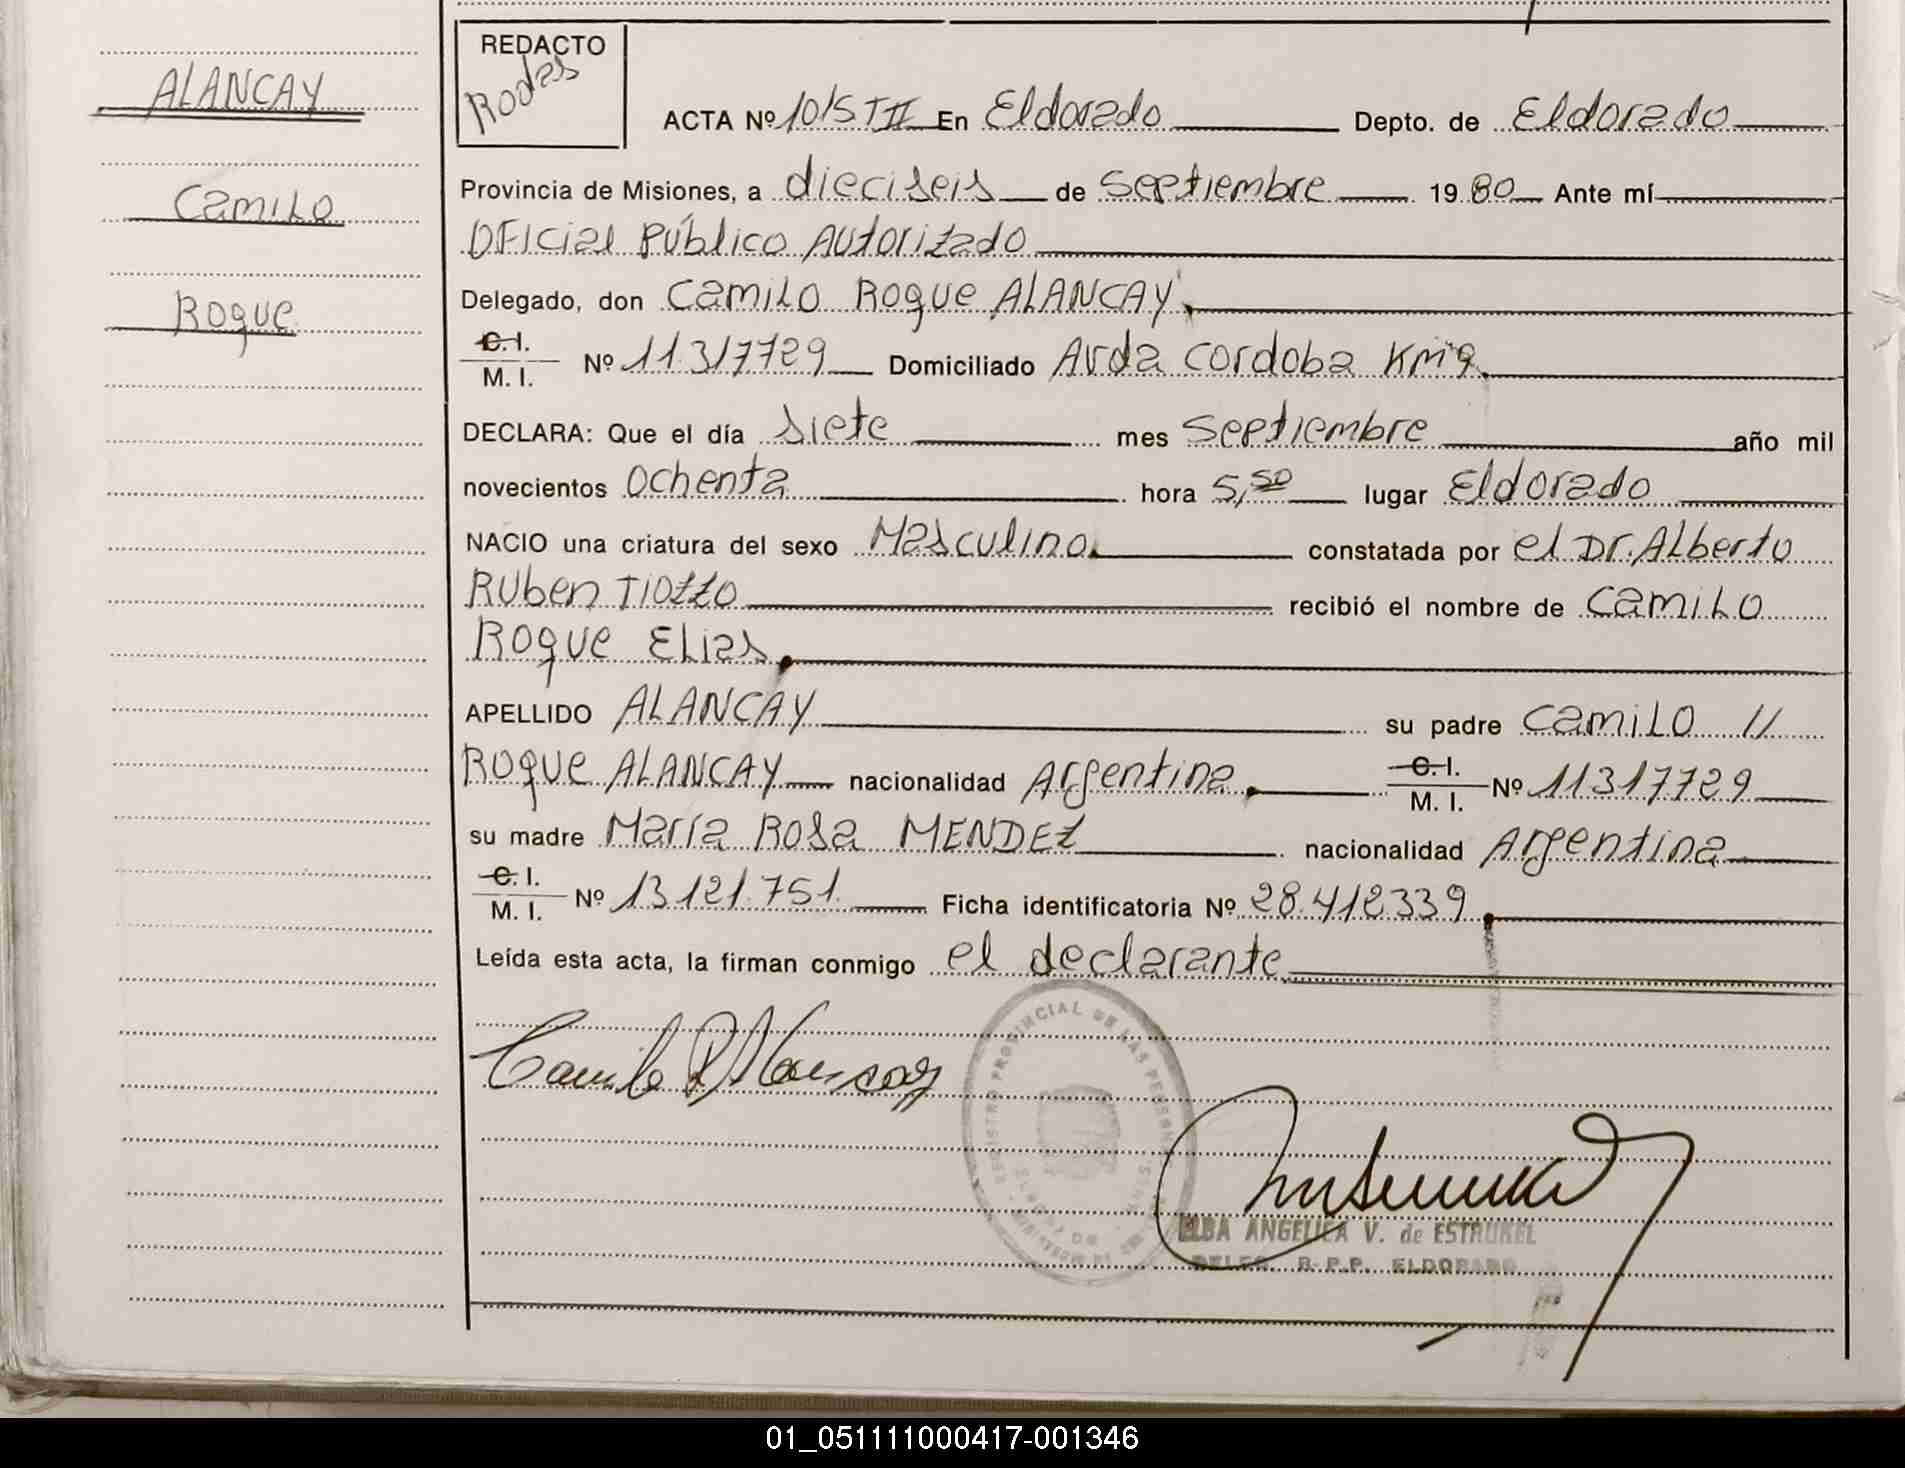 ALANCAY
Camilo
Roque
REDACTO
Rodas
ACTA Nº 1015 T II En Eldorado Depto. de Eldorado
Provincia de Misiones, a dieciseis de Septiembre 19 80 Ante mí
Oficial Público Autorizado
Delegado, don Camilo Roque ALANCAY,
C. I.
M. I. Nº 11.317729 Domiciliado Avda Cordoba Km 9.
DECLARA: Que el día siete mes Septiembre año mil
novecientos ochenta hora 5,50 lugar Eldorado
NACIO una criatura del sexo Masculino. constatada por el Dr. Alberto
Ruben Tiozzo recibió el nombre de Camilo
Roque Elias.
APELLIDO ALANCAY su padre Camilo //
Roque ALANCAY nacionalidad Argentina. C. I. M. I. Nº 11317729
su madre María Rosa MENDEZ nacionalidad Argentina
C. I.
M. I. Nº 13.121.751. Ficha identificatoria Nº 28.412339.
Leída esta acta, la firman conmigo el declarante
Camilo R Alancay
REGISTRO PROVINCIAL DE LAS PERSONAS
ELBA ANGELICA V. de ESTRUKEL
DELEG. R. P. P. ELDORADO
01_051111000417-001346